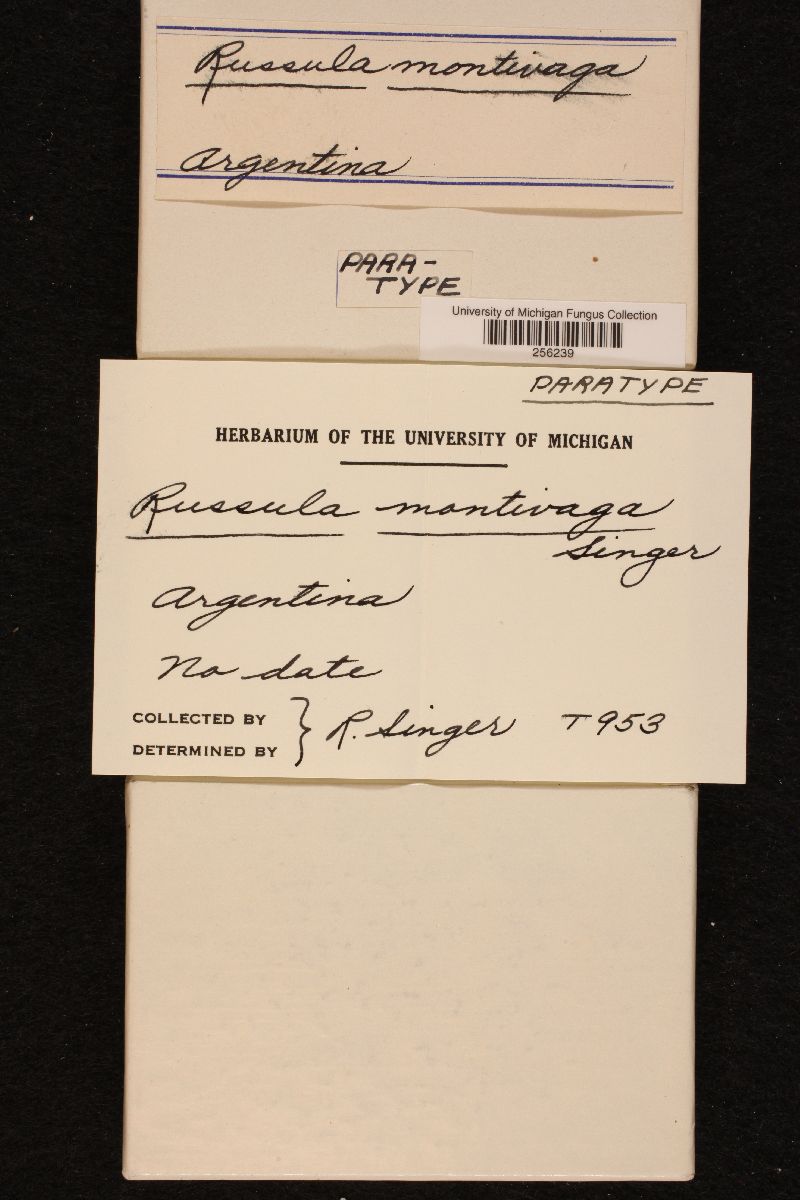 Russula montivaga
Argentina
PARA-
TYPE
University of Michigan Fungus Collection
256239
PARATYPE
HERBARIUM OF THE UNIVERSITY OF MICHIGAN
Russula montivaga
Singer
Argentina
No date
COLLECTED BY
DETERMINED BY } R. Singer T953